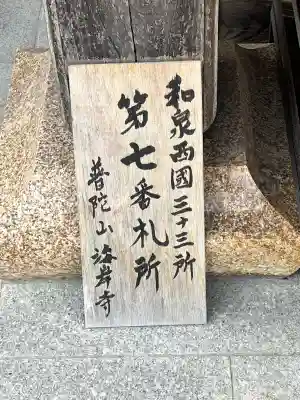 和泉西國三十三所
第七番札所
普陀山海岸寺